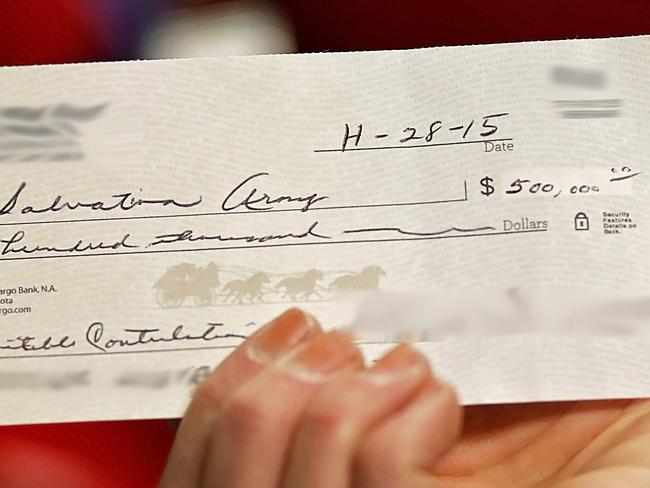 H-28-15
Date
Salvation Army $ 500,000 00
hundred thousand Dollars
Security
Features
Details on
Back.
argo Bank, N.A.
ota
rgo.com
itable Contribution